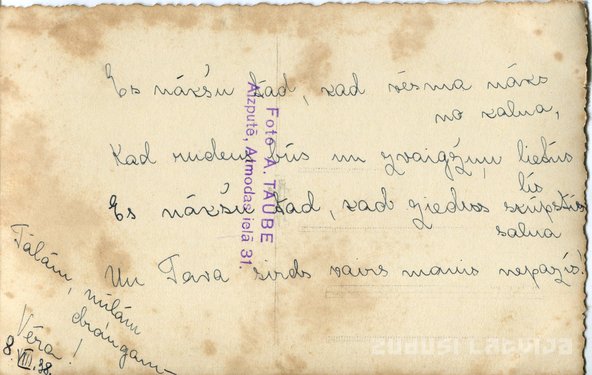 Es nākšu tad, kad vēsma nāks
no kalna,
Kad rudens būs un zvaigžņu lietus
līs
Es nākšu tad, kad ziedus skūpstīs
salna
Un Tava sirds vairs manis nepazīs!
Tālām, mīļām
draugam
Vēra!
8.VIII.38.
Foto A. TAUBE
Aizputē, Atmodas ielā 31.
ZUDUSI LATVIJA